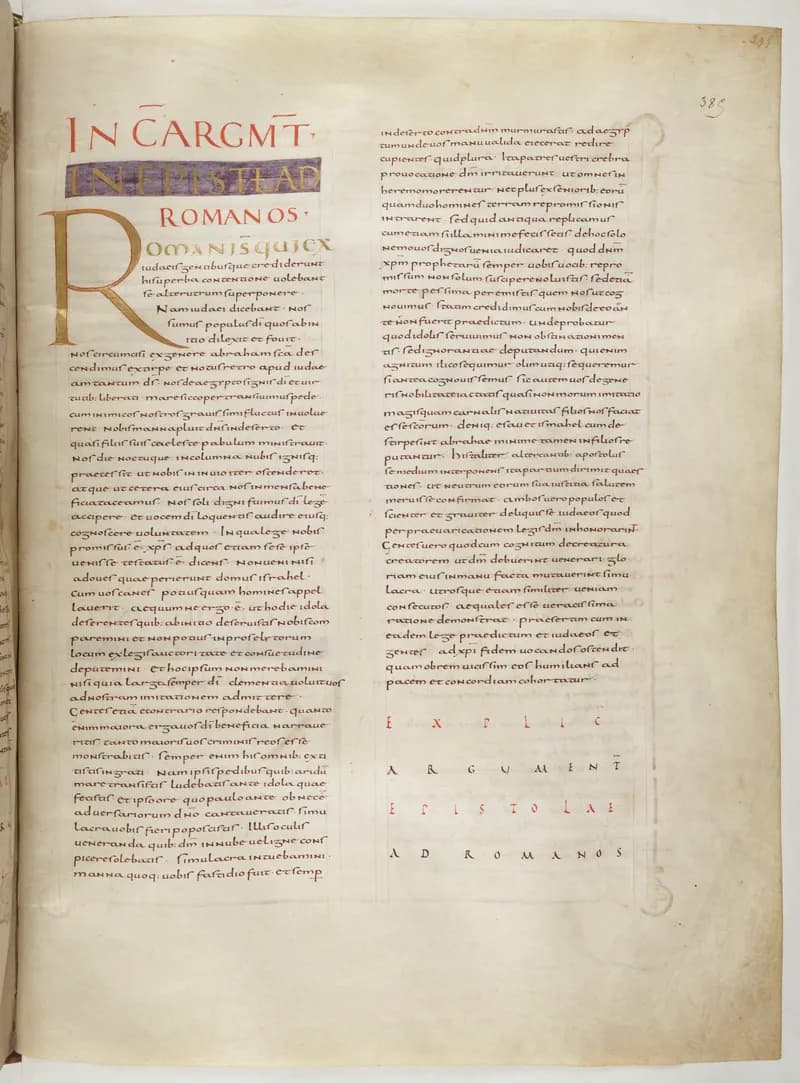 389
IN C̄ ARGM̄T·
IN EPIST EAD
ROMANOS·
ROMANIS QUI EX
iudaeis gentibusque crediderunt
hi superba contentione uolebant
se alterutrum superponere·
Nam iudaei dicebant· Nos
sumus populus di quos ab in
itio dilexit et fouit·
Nos circumcisi ex genere abraham sca des
cendimus ex stirpe et notus retro apud iudae
am tantum ds· Nos de aegypto signis di et uir
tutib; liberati· mare sicco pertransiuimus pede·
cum inimicos nostros grauissimi fluctus inuolue
rent· Nobis manna pluit dns in deserto· Et
quasi filiis suis caeleste pabulum ministrauit·
Nos die noctuque in columna nubis ignisq;
praecessit ut nobis in inuio iter ostenderet·
atque ut cetera eius circa nos inmensa bene
ficia taceamus· Nos soli digni fuimus di lege
accipere· et uocem di loquentis audire eiusq;
cognoscere uoluntatem· In qua lege nobis
promissus ē xps· ad quos etiam sese ipse
uenisse testatus ē dicens· Non ueni nisi
ad oues quae perierunt domus israhel·
Cum uos canes potius quam homines appel
lauerit· aequum ne ergo ē· ut hodie idola
deserentes quib; ab initio deseruistis nobiscom
paremini et non potius in proselytorum
locum ex legis auctoritate et consuetudine
deputemini· Et hoc ipsum non merebamini
nisi quia larga semper di clementia uoluit uos
ad nostram imitationem admittere·
Gentes etiā e contrario respondebant· quanto
enim maiora erga uos di beneficia narraue
ritis· tanto maioris uos criminis reos esse
monstrabitis· semper enim his omnib; exti
tistis ingrati· Nam ipsis pedibus quib; aridū
mare transistis ludebatis ante idola quae
fecistis· et ipso ore quo paulo ante ob necē
aduersariorum dno cantaueratis· simu
lacra uobis fieri poposcistis· Illis oculis
ueneranda quib; dm in nube uel igne cons
picere solebatis· simulacra intuebamini·
manna quoq; uobis fastidio fuit· et semp
in deserto contra dnm murmurastis· ad aegyp
tum unde uos manu ualida eiecerat redire
cupientes quid plura· Ita patres uestri crebra
prouocatione dm irritauerunt· ut omnes in
heremo morerentur· Nec plus ex seniorib; eorū
quam duo homines terram repromissionis
intrarent· sed quid antiqua replicamus
cum etiam si illa minime fecissetis· de hoc solo
nemo uos dignos uenia iudicaret· quod dnm
xpm prophetarū semper uobis uocib; repro
missum non solum suscipere noluistis· sed etiā
morte pessima peremistis quem nos ut cog
nouimus statim credidimus cum nobis de eo an
te non fuerit praedictum· unde probatur
quod idolis seruiuimus non obstinationi men
tis· sed ignorantiae deputandum· qui enim
agnitum ilico sequimur· olim utiq; sequeremur
si antea cognouissemus· sic autem uos de gene
ris nobilitate iactatis quasi non morum imitatio
magis quam carnalis natiuitas filios nos faciat
esse scorum· deniq; esau et ismahel cum de
stirpe sint abrahae minime tamen in filios re
putantur· His taliter altercantib; apostolus
se medium interponens ita partium dirimit quaes
tiones· ut neutrum eorum sua iustitia salutem
meruisse confirmat· ambos uero populos et
scienter et grauiter deliquisse iudaeos quod
per praeuaricationem legis dm inhonorarint·
Gentes uero quod cum cognitum de creatura
creatorem ut dm debuerint uenerari glo
riam eius in manu facta mutauerint simu
lacra· utrosque etiam similiter ueniam
consecutos aequales esse ueracissima
ratione demonstrat· praesertim cum in
eadem lege praedictum et iudaeos et
gentes ad xpi fidem uocandos ostendit·
quamobrem uicissim eos humilians ad
pacem et concordiam cohortatur·
EXPLIC
ARGUMENT̄
EPISTOLAE
AD ROMANOS